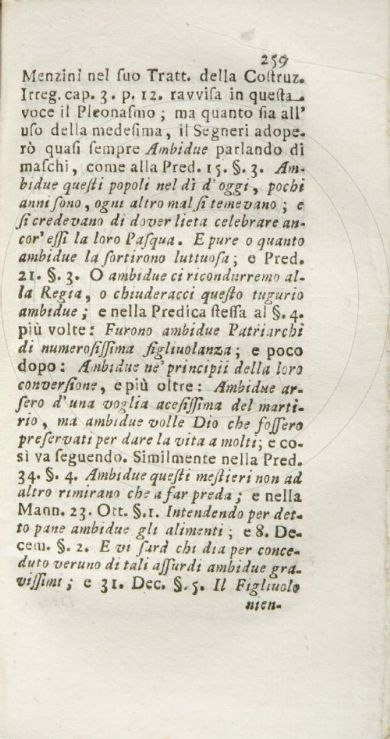 259
Menzini nel suo Tratt. della Costruz.
Irreg. cap. 3. p. 12. ravvisa in questa
voce il Pleonasmo; ma quanto sia all'
uso della medesima, il Segneri adope-
rò quasi sempre Ambidue parlando di
maschi, come alla Pred. 15. §. 3. Am-
bidue questi popoli nel dì d'oggi, pochi
anni sono, ogni altro mal si temevano; e
si credevano di dover lieta celebrare an-
cor' essi la loro Pasqua. E pure o quanto
ambidue la sortirono luttuosa; e Pred.
21. §. 3. O ambidue ci ricondurremo al-
la Regia, o chiuderacci questo tugurio
ambidue; e nella Predica stessa al §. 4.
più volte: Furono ambidue Patriarchi
di numerosissima figliuolanza; e poco
dopo: Ambidue ne' principii della loro
conversione, e più oltre: Ambidue ar-
sero d'una voglia acesissima del marti-
rio, ma ambidue volle Dio che fossero
preservati per dare la vita a molti; e co-
sì va seguendo. Similmente nella Pred.
34. §. 4. Ambidue questi mestieri non ad
altro rimirano che a far preda; e nella
Mann. 23. Ott. §. 1. Intendendo per det-
to pane ambidue gli alimenti; e 8. De-
cem. §. 2. E vi sarà chi dia per conce-
duto veruno di tali assurdi ambidue gra-
vissimi; e 31. Dec. §. 5. Il Figliuolo
men-